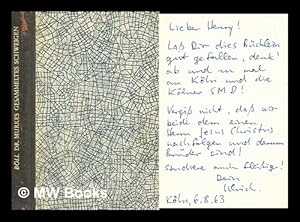 BÖLL DR. MURKES GESAMMELTES SCHWEIGEN
Lieber Henry!
Laß Dir dies Büchlein
gut gefallen, denk'
ab und zu mal
an Köln und die
Kölner SMD!
Vergiß nicht, daß wir
beide dem einen,
Herrn Jesus Christus
nachfolgen und darum
Brüder sind!
auch
Dein
Ulrich.
Köln, 6.8.63
© MW Books